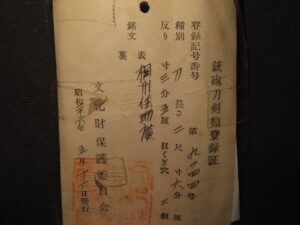 銃砲刀剣類登録証
登録記号番号 第 九〇四四号
種別 刀 長さ 二尺 寸六分 厘
反り 寸三分五厘 目くぎ穴 二個
銘文 表 相州住助廣
裏
文化財保護委員会
昭和 年五月十六日発行